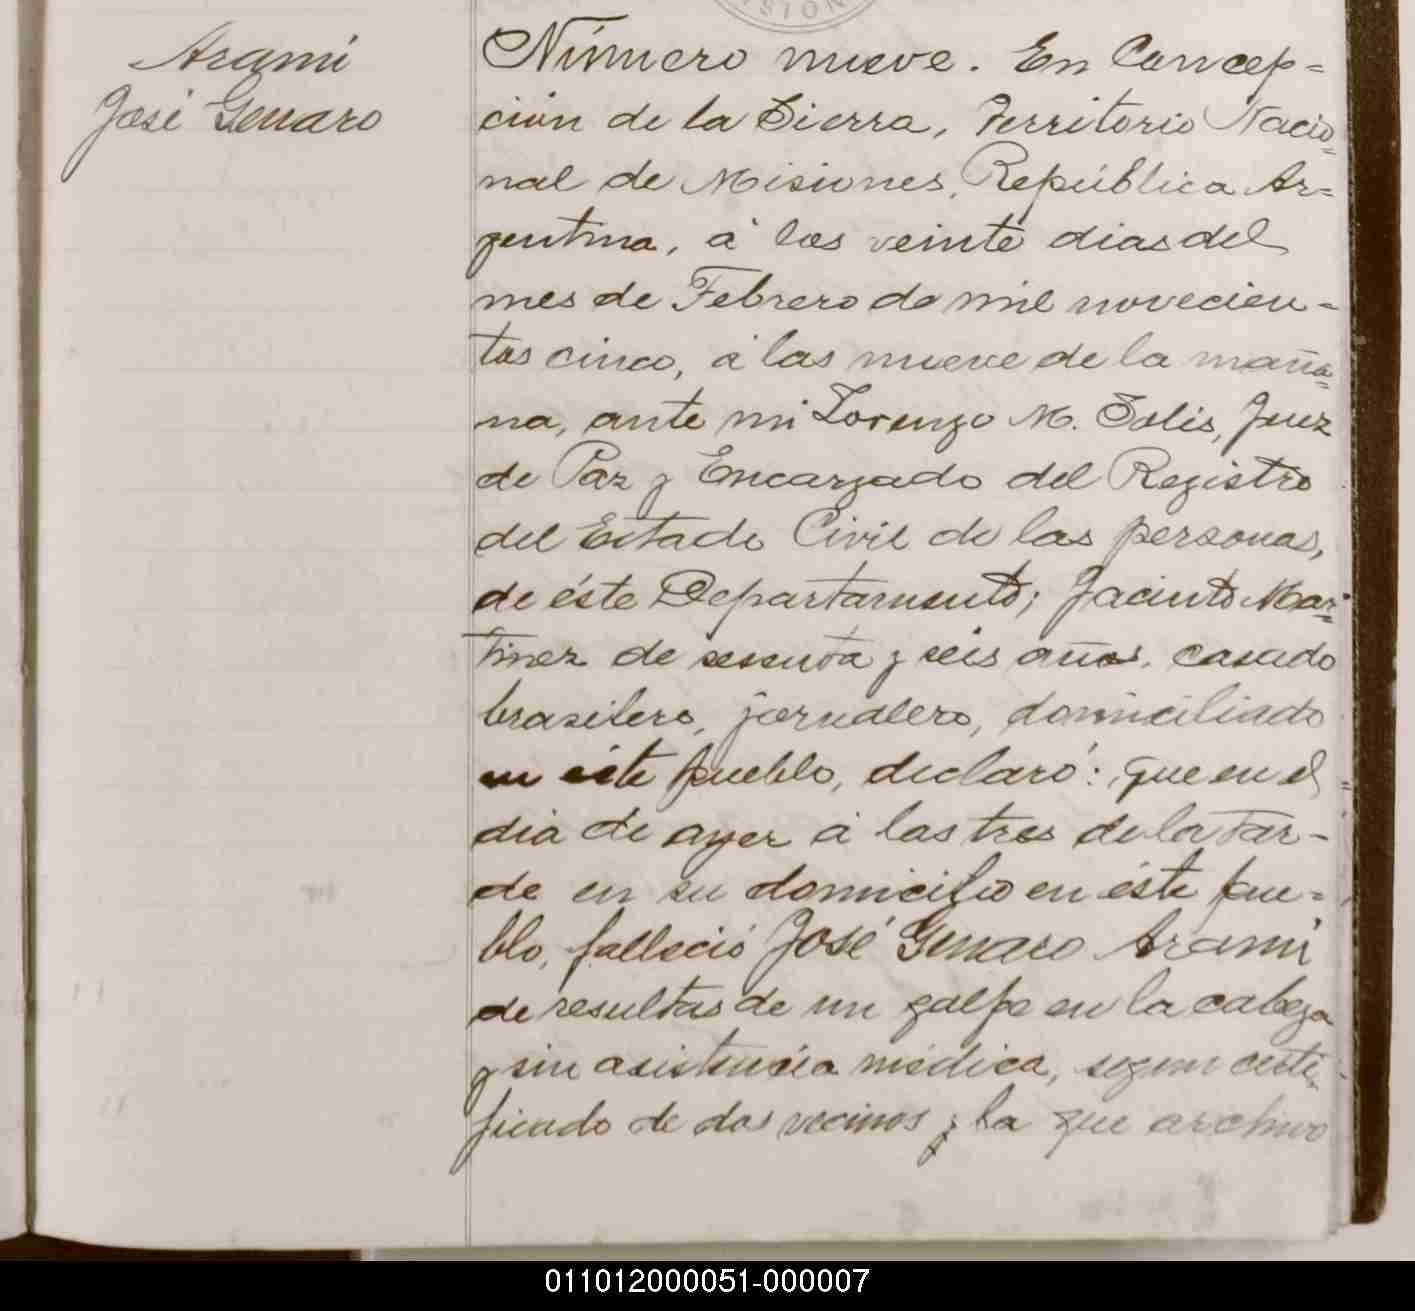 Arami
José Genaro
Número nueve. En Concep=
ción de la Sierra, Territorio Nacio=
nal de Misiones, República Ar=
gentina, á los veinte dias del
mes de Febrero de mil novecien=
tos cinco, á las nueve de la maña=
na, ante mi Lorenzo M. Solis, Juez
de Paz y Encargado del Registro
del Estado Civil de las personas,
de éste Departamento; Jacinto Mar=
tinez de sesenta y seis años, casado
brasilero, jornalero, domiciliado
en éste pueblo, declaró: que en el
dia de ayer á las tres de la tar=
de en su domicilio en éste pue=
blo, falleció José Genaro Arami
de resultas de un golpe en la cabeza
y sin asistencia médica, segun certi=
ficado de dos vecinos y la que archivo
011012000051-000007